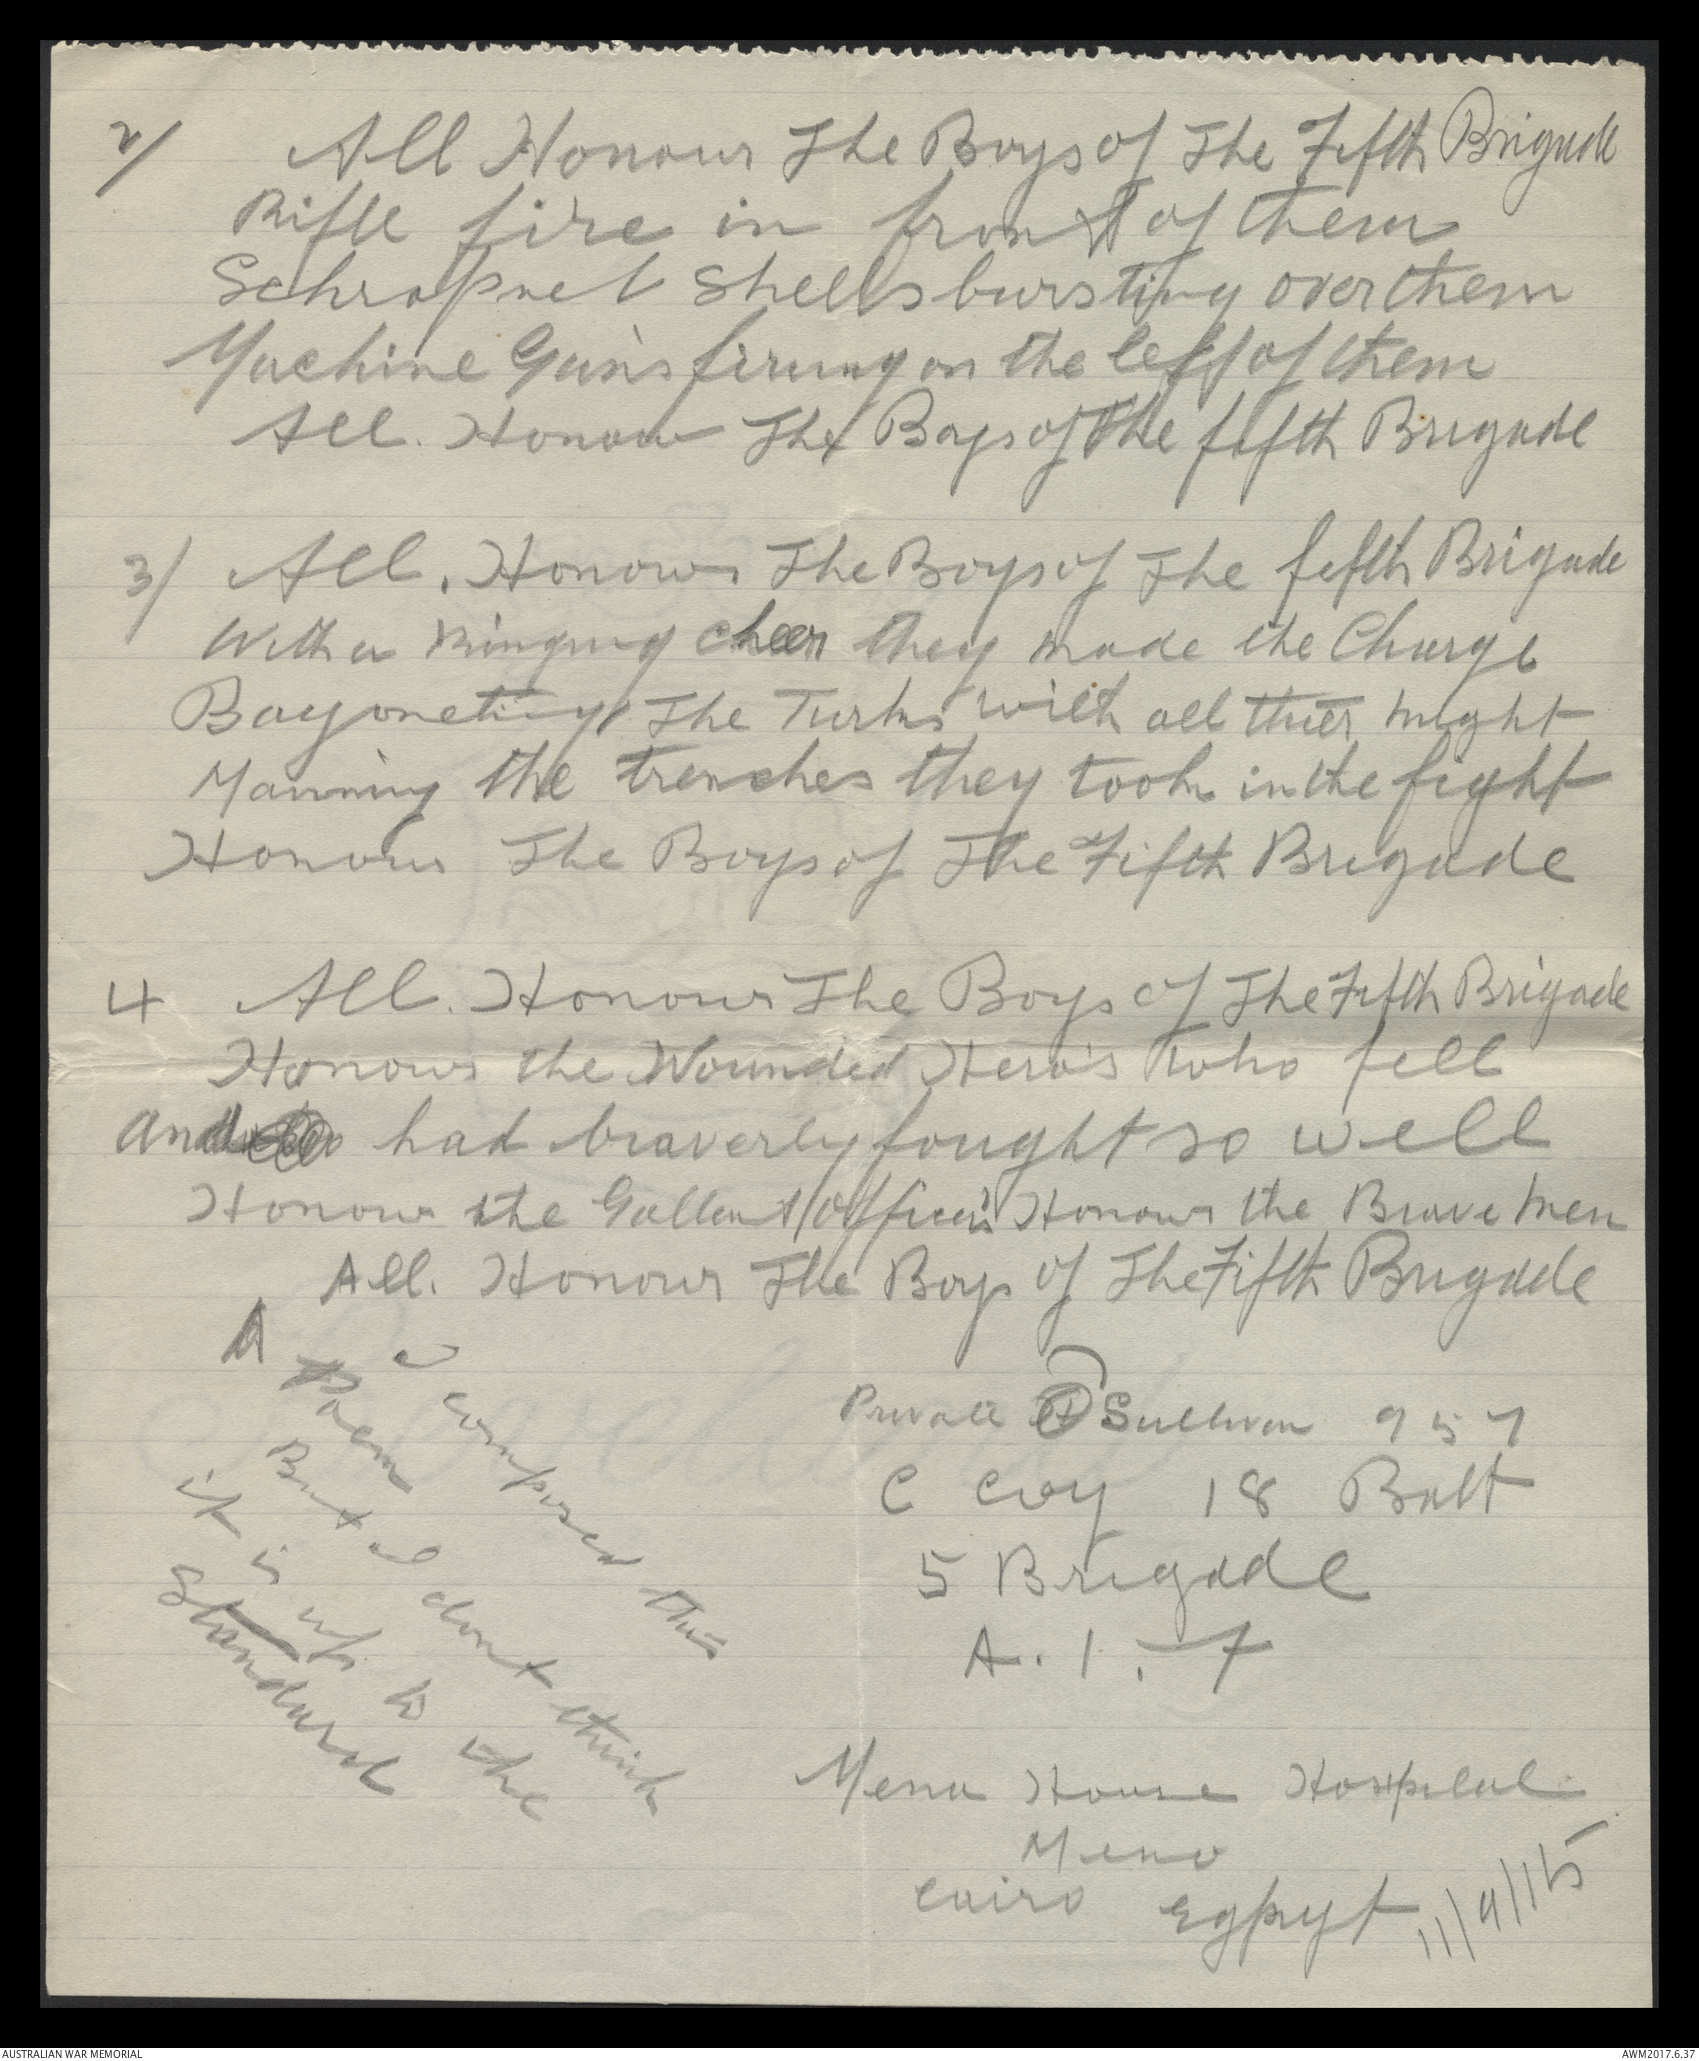 2/ All Honour The Boys of The Fifth Brigade
Rifle fire in front of them
Schrapnel Shells bursting over them
Machine Gun's firing on the left of them
All. Honour The Boys of The fifth Brigade
3/ All. Honour The Boys of The fifth Brigade
With a Ringing cheer they made the Charge
Bayoneting The Turks with all thier might
Manning the trenches they took in the fight
Honour The Boys of The Fifth Brigade
4 All. Honour The Boys of The Fifth Brigade
Honour the Wounded Hero's who fell
And had braverly fought so well
Honour the Gallant Officer's Honour the Brave Men
All. Honour The Boys of The Fifth Brigade
I composed this
A Poem
But I dont think
it is up to the
Standard
Private Sullivan 957
C Coy 18 Batt
5 Brigade
A. I. F
Mena House Hospital
Mena
Cairo Egpyt 11/9/15
AUSTRALIAN WAR MEMORIAL
AWM2017.6.37